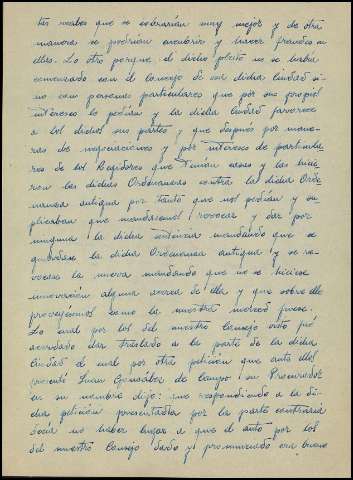 tas reales que se cobrarían muy mejor y de otra
manera se podrían encubrir y hacer fraudes en
ellas. Lo otro porque el dicho pleito no se había
comenzado con el Consejo de esta dicha Ciudad si-
no con personas particulares que por sus propios
intereses lo pedían y la dicha Ciudad favorece
a los dichos sus partes y que después por mane-
ras de negociaciones y por intereses de particula-
res de los Regidores que tenían casas y las hicie-
ron las dichas Ordenanzas contra la dicha Orde-
nanza antigua por tanto que nos pedían y su-
plicaban que mandásemos revocar y dar por
ninguna la dicha sentencia mandando que se
guardase la dicha Ordenanza antigua y se re-
vocase la nueva mandando que no se hiciese
innovación alguna acerca de ella y que sobre ello
proveyésemos como la nuestra merced fuese.
Lo cual por los del nuestro Consejo visto fué
acordado dar traslado a la parte de la dicha
Ciudad el cual por otra petición que ante ellos
presentó Juan González de Campo su Procurador
en su nombre dijo: que respondiendo a la di-
cha petición presentada por la parte contraria
decía no haber lugar a que el auto por los
del nuestro Consejo dado y pronunciado era bueno